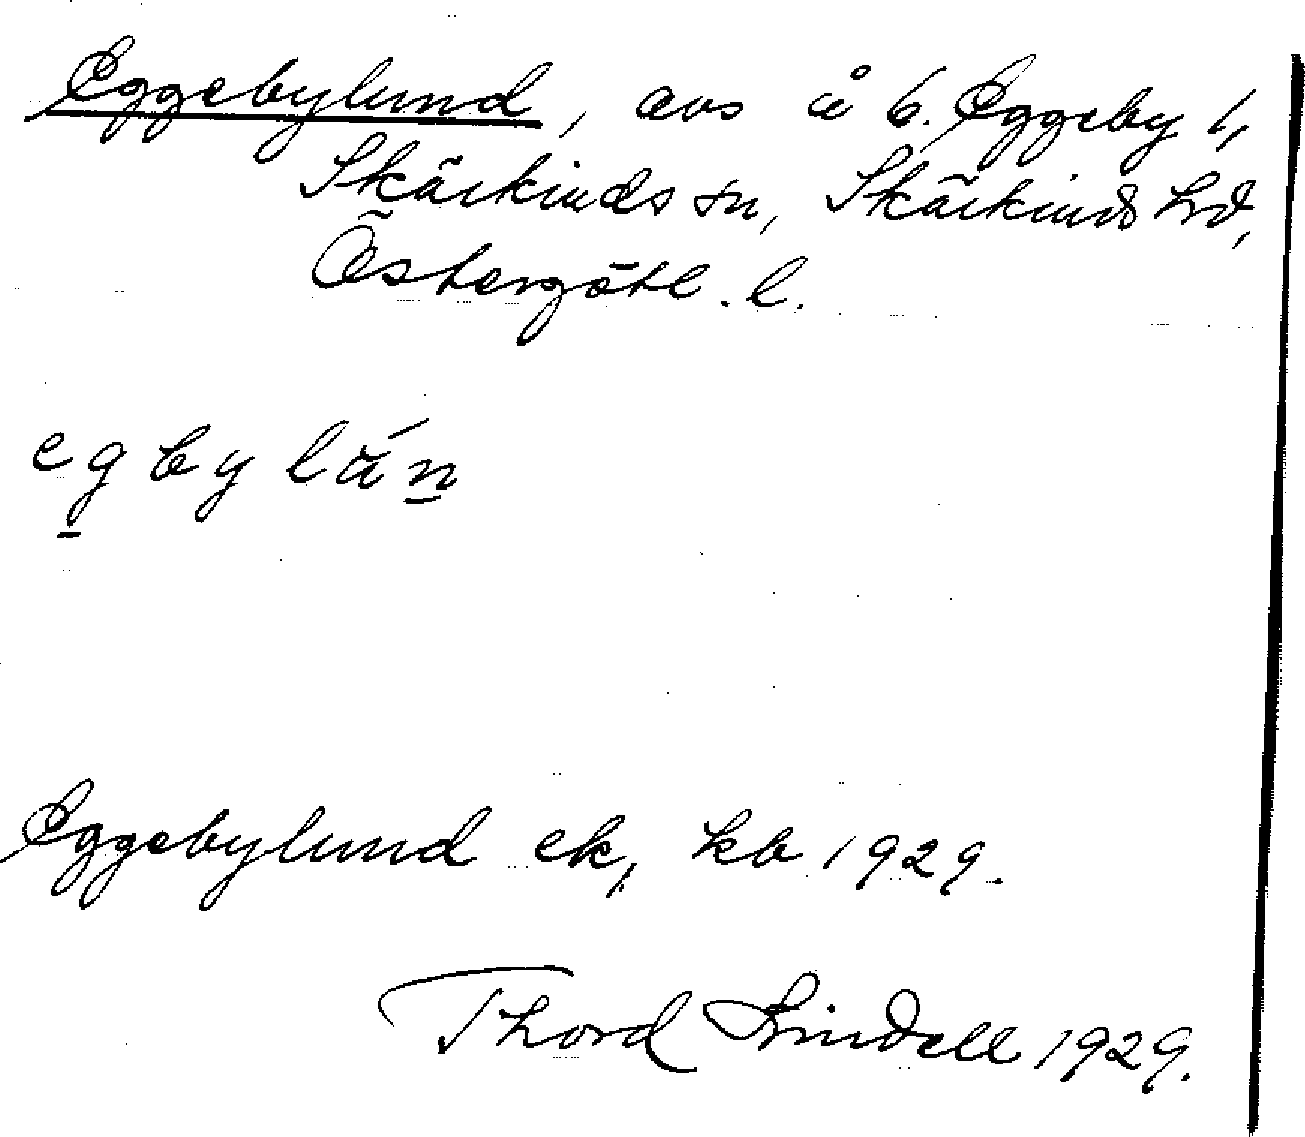 Eggebylund, avs å b. Eggeby 1,
Skärkinds sn, Skärkinds hd,
Östergötl. l.
egbylán
Eggebylund ek, kb 1929.
Thord Lindell 1929.